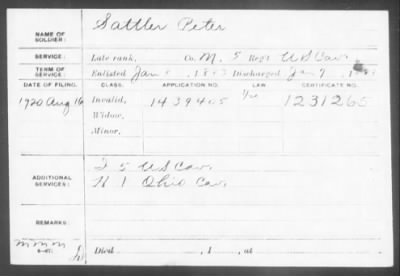 NAME OF SOLDIER: Sattler Peter
SERVICE: Late rank, Co. M, 5 Reg't US Cav.
TERM OF SERVICE: Enlisted Jan , 18 Discharged Jan 7, 1
DATE OF FILING. CLASS. APPLICATION NO. LAW CERTIFICATE NO.
1920 Aug 16 Invalid, 1439405 1231265
Widow,
Minor,
ADDITIONAL SERVICES: 5 US Cav.
K 1 Ohio Cav.
REMARKS:
Died , 1 , at